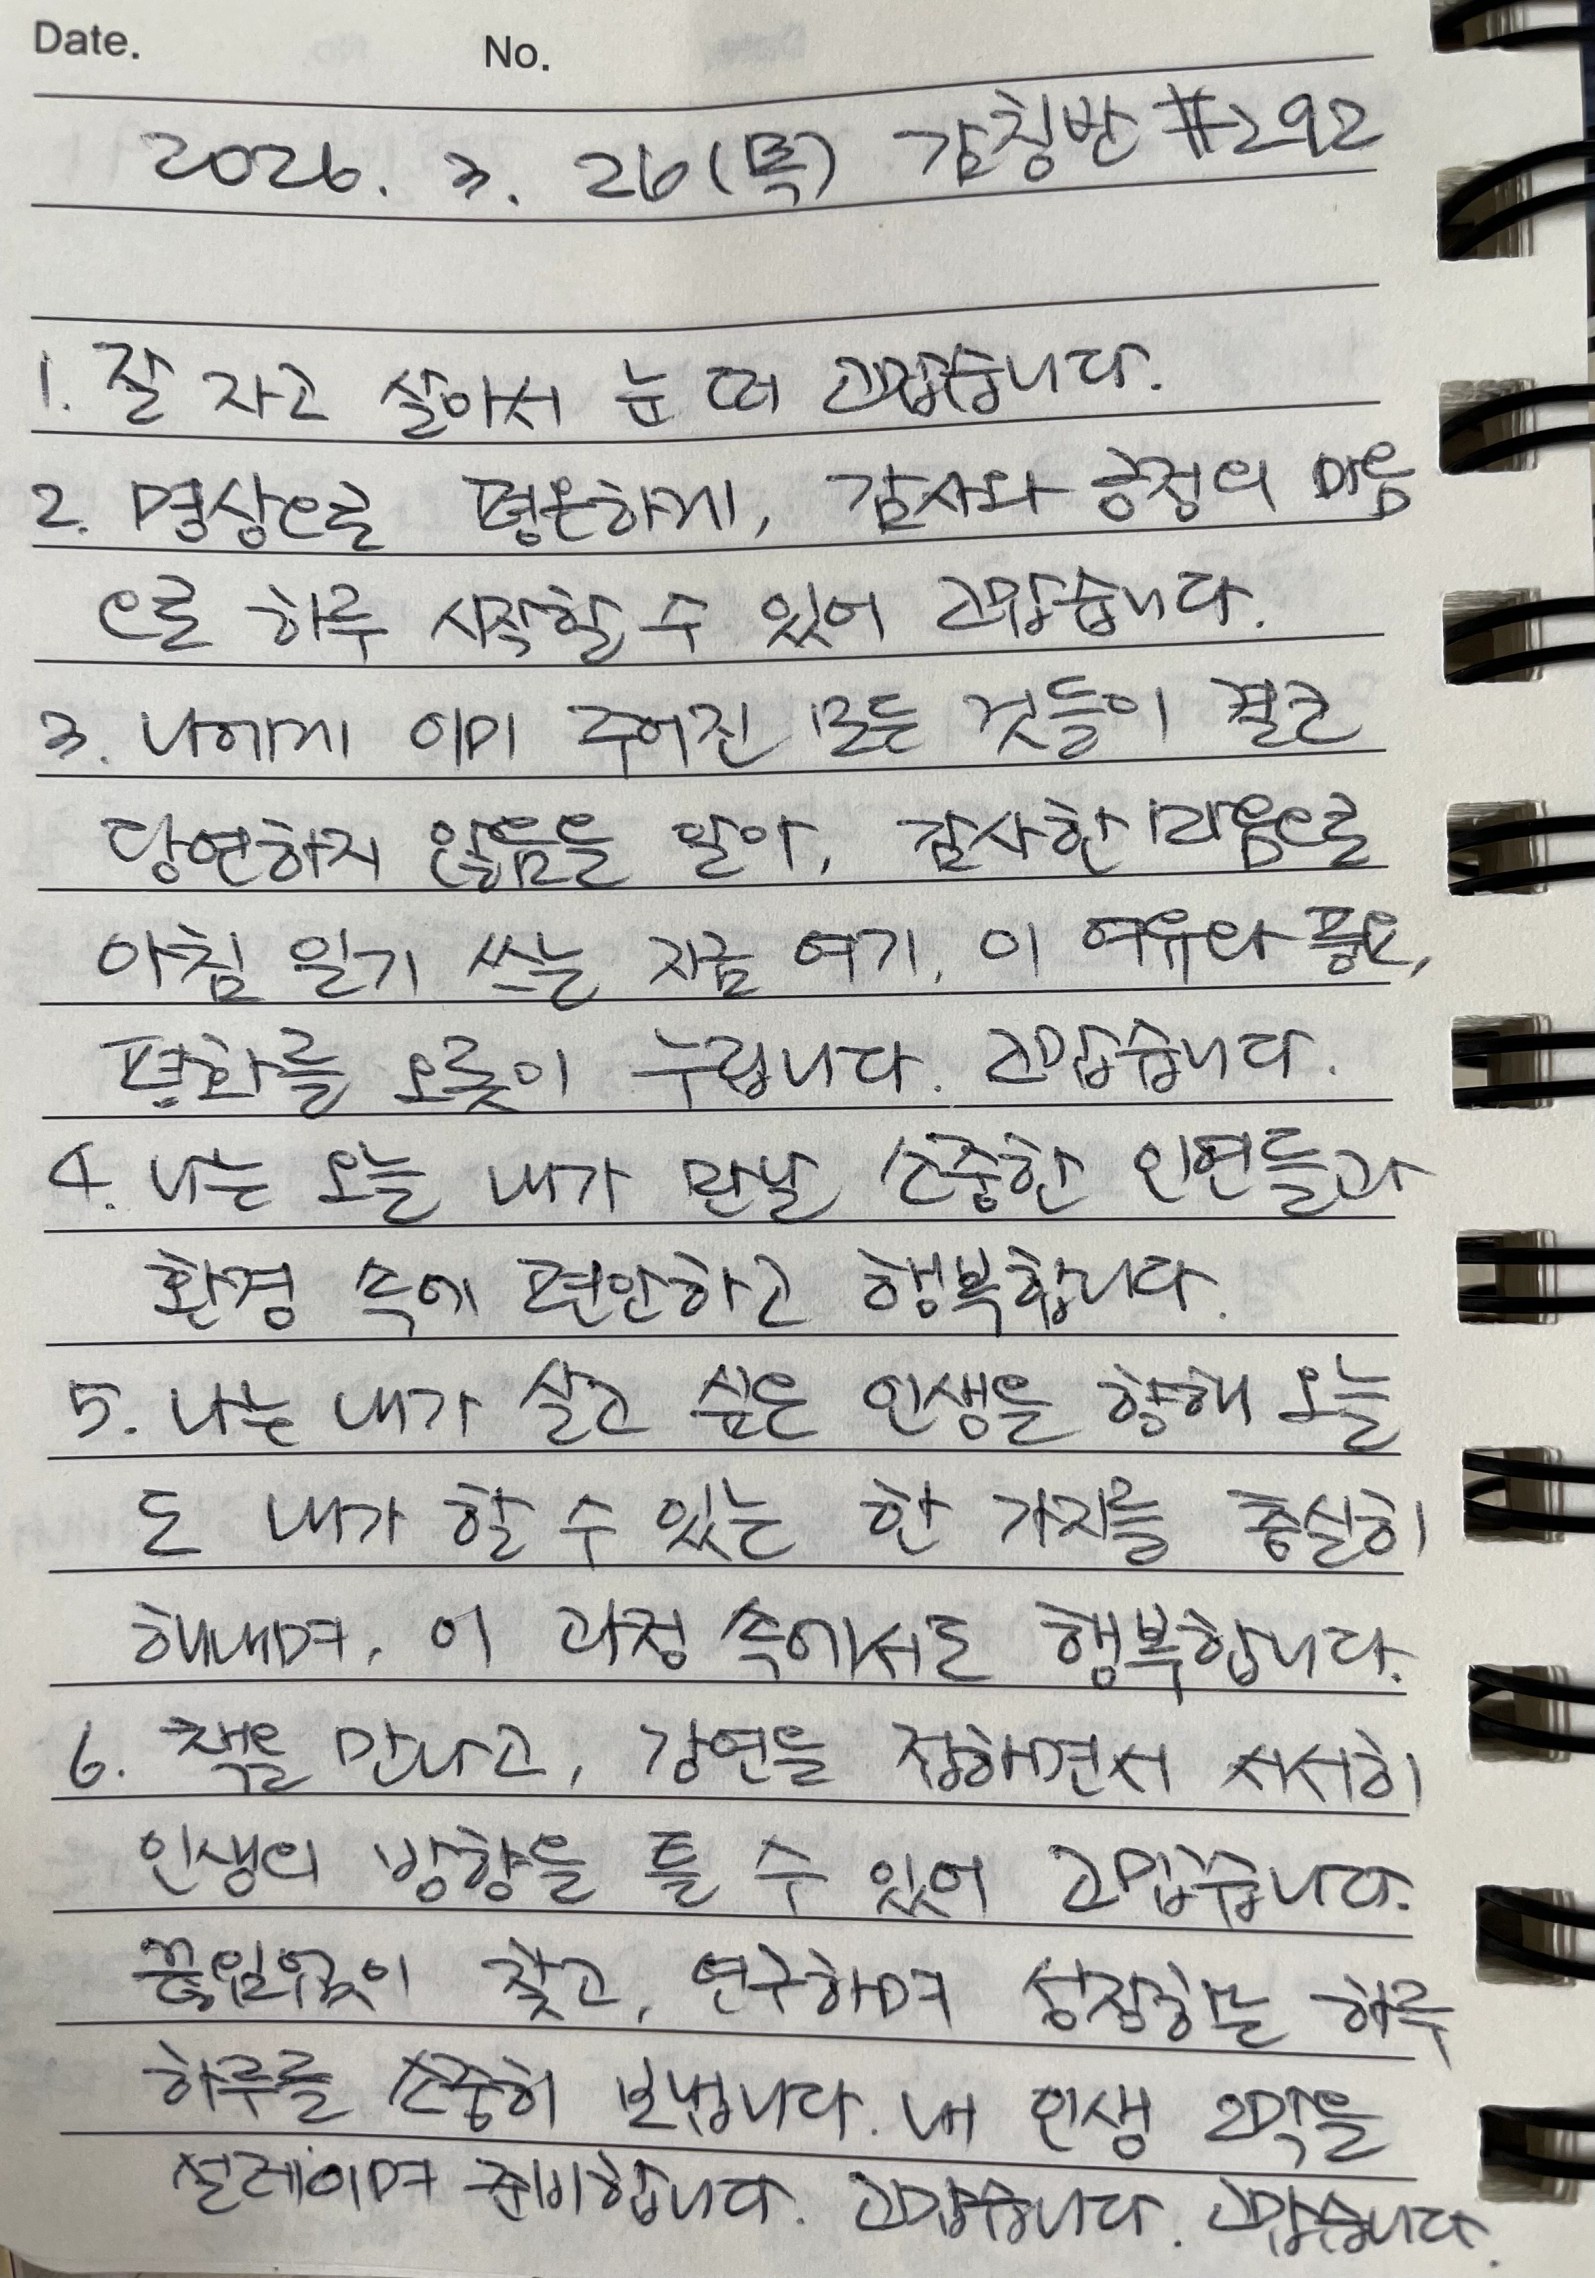 Date. No.
2026. 3. 26(목) 감칭반 #292
1. 잘 자고 살아서 눈 떠 고맙습니다.
2. 명상으로 평온하게, 감사와 긍정의 마음
으로 하루 시작할 수 있어 고맙습니다.
3. 나에게 이미 주어진 모든 것들이 결코
당연하지 않음을 알아, 감사한 마음으로
아침 일기 쓰는 지금 여기, 이 여유와 풍요,
평화를 오롯이 누립니다. 고맙습니다.
4. 나는 오늘 내가 만날 소중한 인연들과
환경 속에 편안하고 행복합니다.
5. 나는 내가 살고 싶은 인생을 향해 오늘
도 내가 할 수 있는 한 가지를 충실히
해내며, 이 과정 속에서도 행복합니다.
6. 책을 만나고, 강연을 접하면서 서서히
인생의 방향을 틀 수 있어 고맙습니다.
끊임없이 찾고, 연구하며 성장하는 하루
하루를 소중히 보냅니다. 내 인생 2막을
설레이며 준비합니다. 고맙습니다. 고맙습니다.